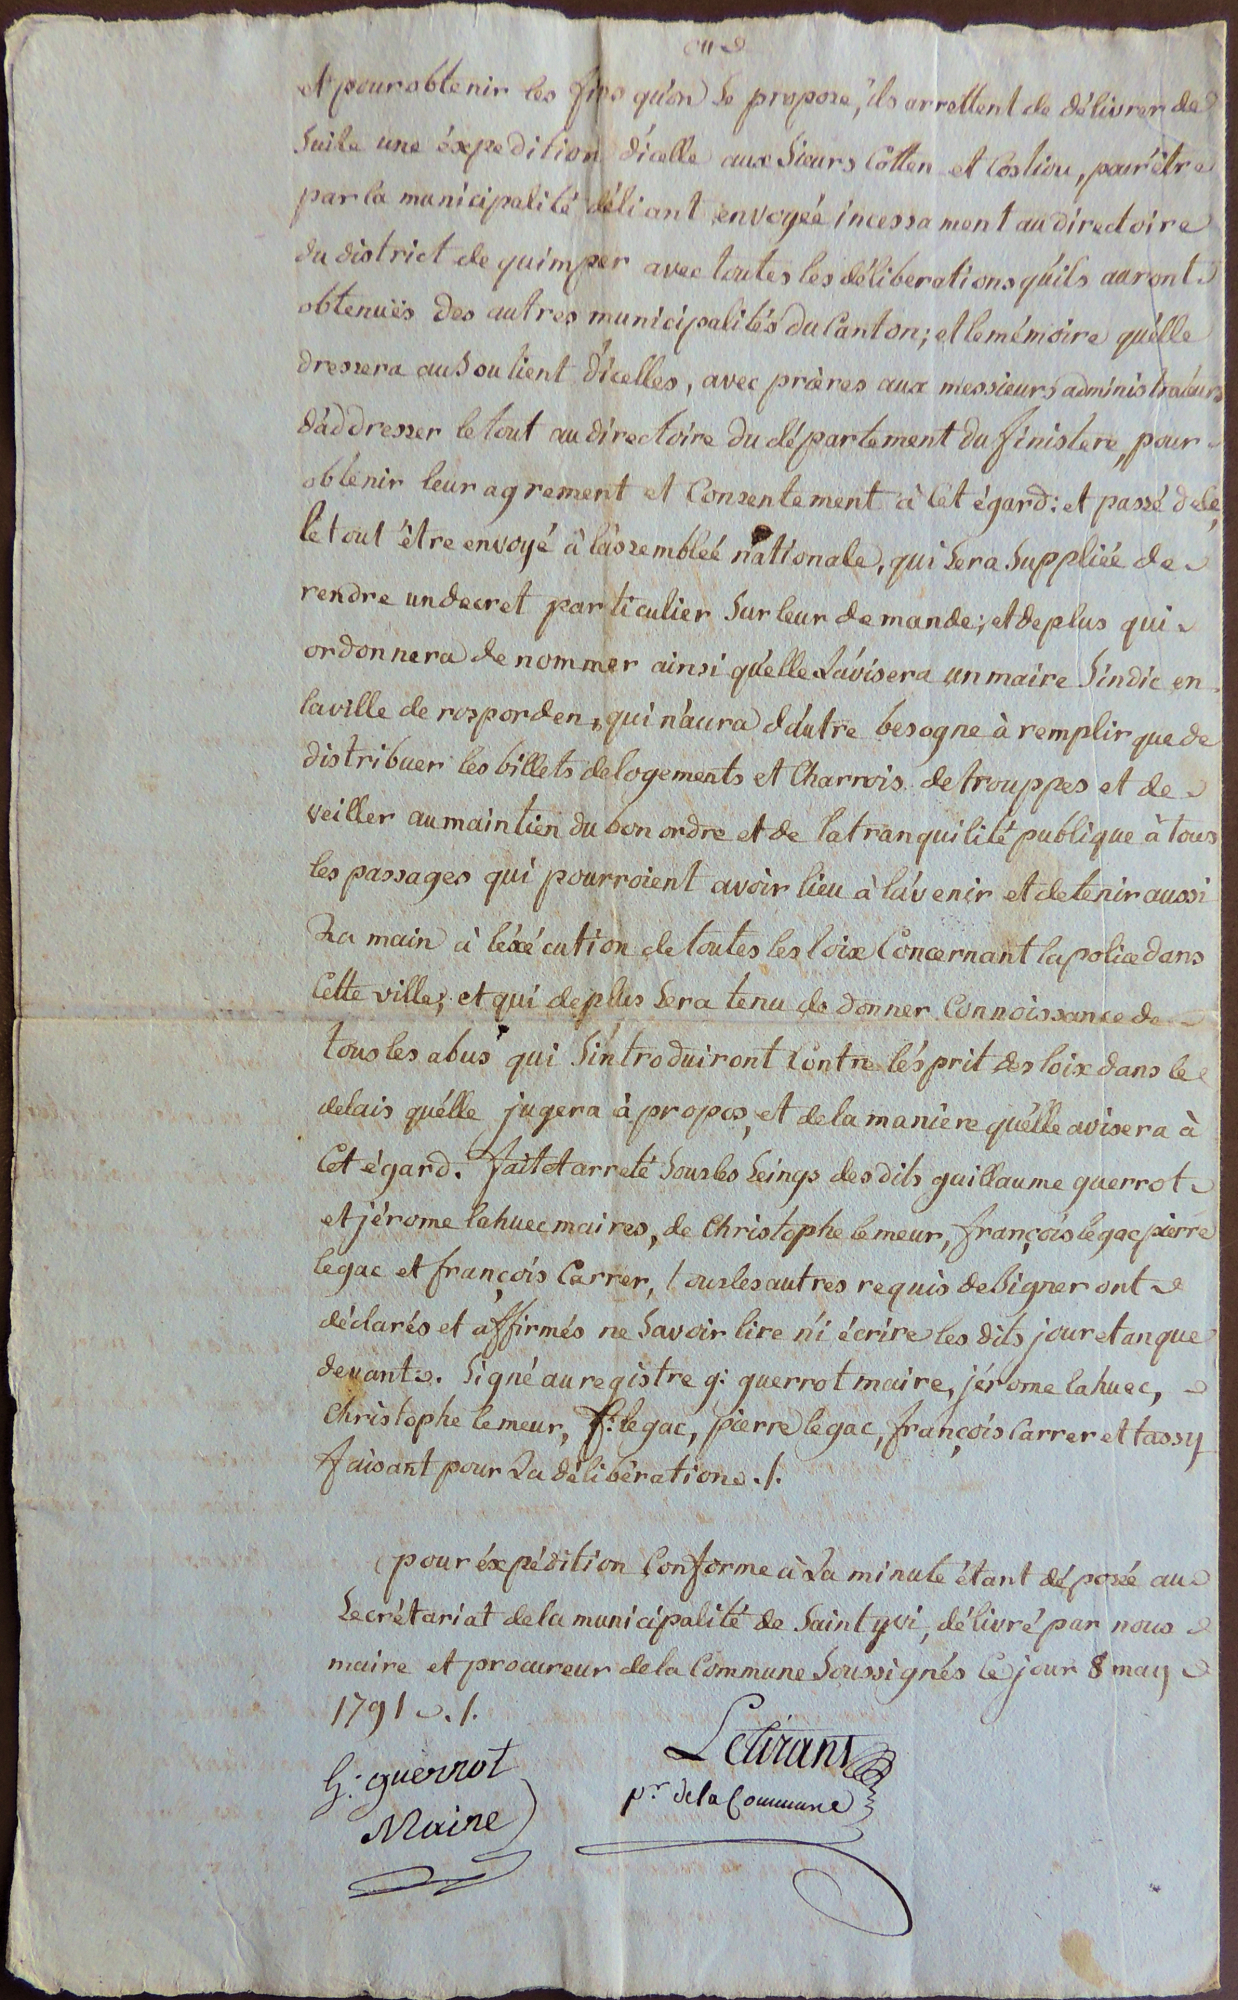 et pour obtenir les fins qu'on se propose, ils arrettent de délivrer de
suite une éxpedition d'icelle aux sieurs Cotten et Costiou, pour être
par la municipalité d'éliant envoyée incessament au directoire
du district de quimper avec toutes les déliberations qu'ils auront
obtenuës des autres municipalités du Canton; et le mémoire qu'elle
dressera au soutient d'icelles, avec prières aux messieurs administrateurs
d'addresser le tout au directoire du département du finistere, pour
obtenir leur agrement et Consentement à Cet égard: et passé de ce,
le tout être envoyé à l'assemblée nationale, qui sera suppliée de
rendre un decret particulier sur leur demande; et de plus qui
ordonnera de nommer ainsi qu'elle l'avisera un maire sindic en
la ville de rosporden, qui n'aura d'autre besogne à remplir que de
distribuer les billets de logements et Charrois de trouppes et de
veiller au maintien du bon ordre et de la tranquilité publique à tous
les passages qui pourroient avoir lieu à l'avenir et de tenir aussi
La main à l'éxécution de toutes les loix Concernant la police dans
Cette ville; et qui de plus sera tenu de donner Connoissance de
tous les abus qui s'introduiront Contre l'ésprit des loix dans le
delais qu'élle jugera à propos, et de la manière qu'élle avisera à
Cet égard. fait et arreté sous les seings des dits guillaume guerrot
et jérome lahuec maires, de Christophe le meur, françois legac pierre
legac et françois Carrer, tous les autres requis de signer ont
déclarés et affirmés ne savoir lire ni écrire les dits jour et an que
devant. signé au registre g: guerrot maire, jérome lahuec,
Christophe le meur, f: legac, pierre legac, françois Carrer et tassy
faisant pour La déliberation ./.
pour éxpédition Conforme à La minute étant déposée au
secrétariat de la municipalité de saint yvi, délivré par nous
maire et procureur de la Commune soussignés Ce jour 8 may
1791 ./.
G: guerrot
Maire
Letirant
pr. de la Commune